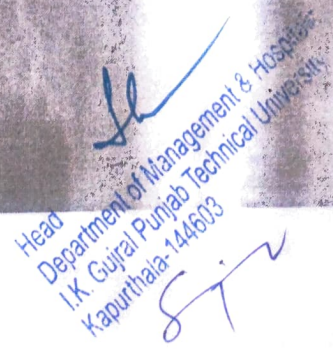 Head
Department of Management &
I.K. Gujral Punjab Technical University
Kapurthala-144603